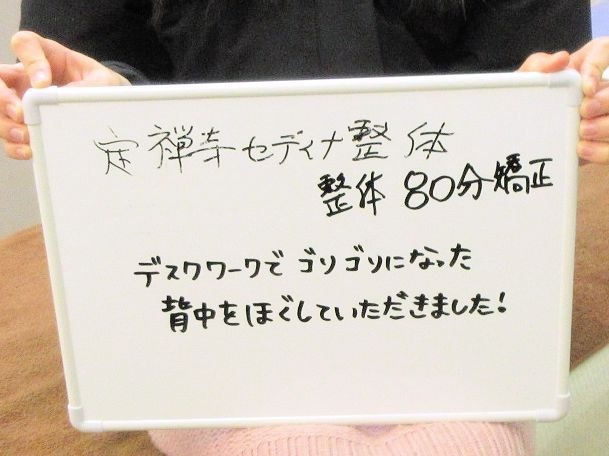 定禅寺セディナ整体
整体 80分矯正
デスクワークで ゴリゴリになった
背中をほぐしていただきました!